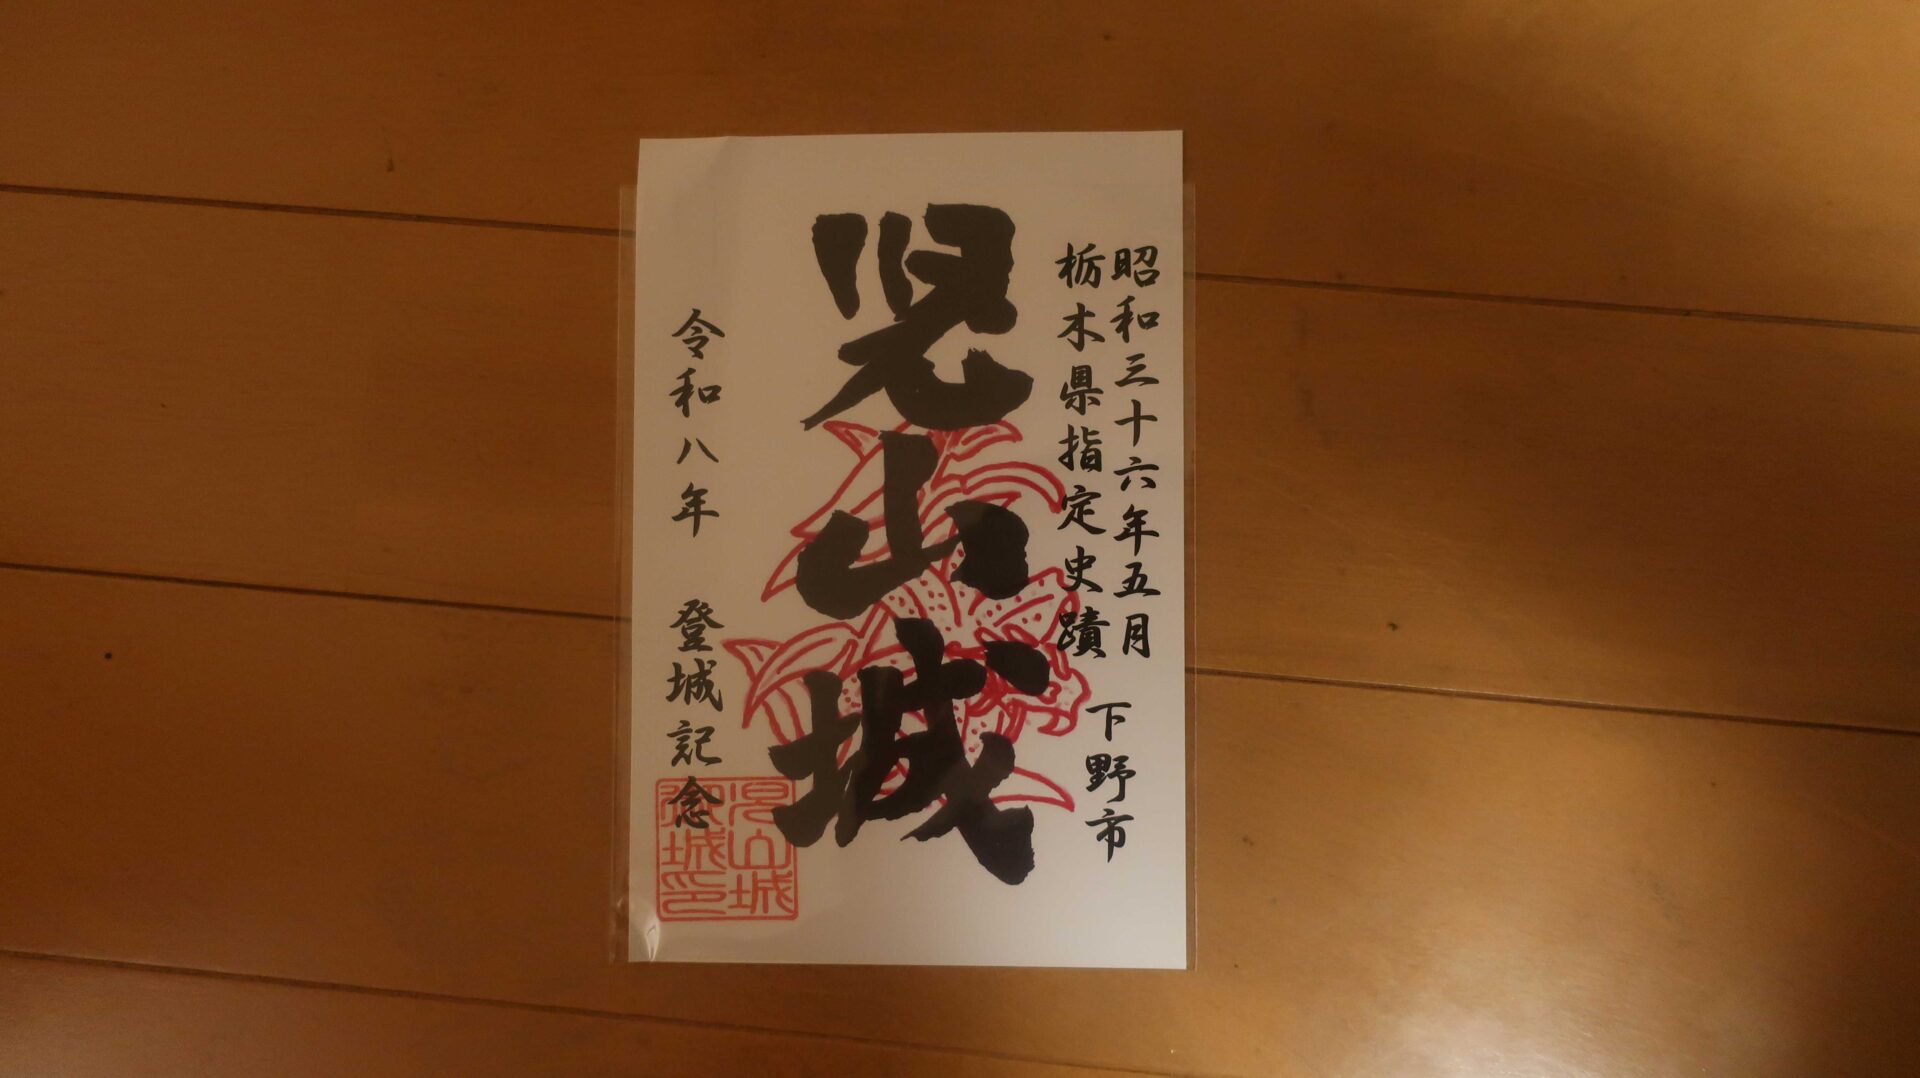 昭和三十六年五月
栃木県指定史蹟
下野市
児山城
令和八年 登城記念
児山城
御城印